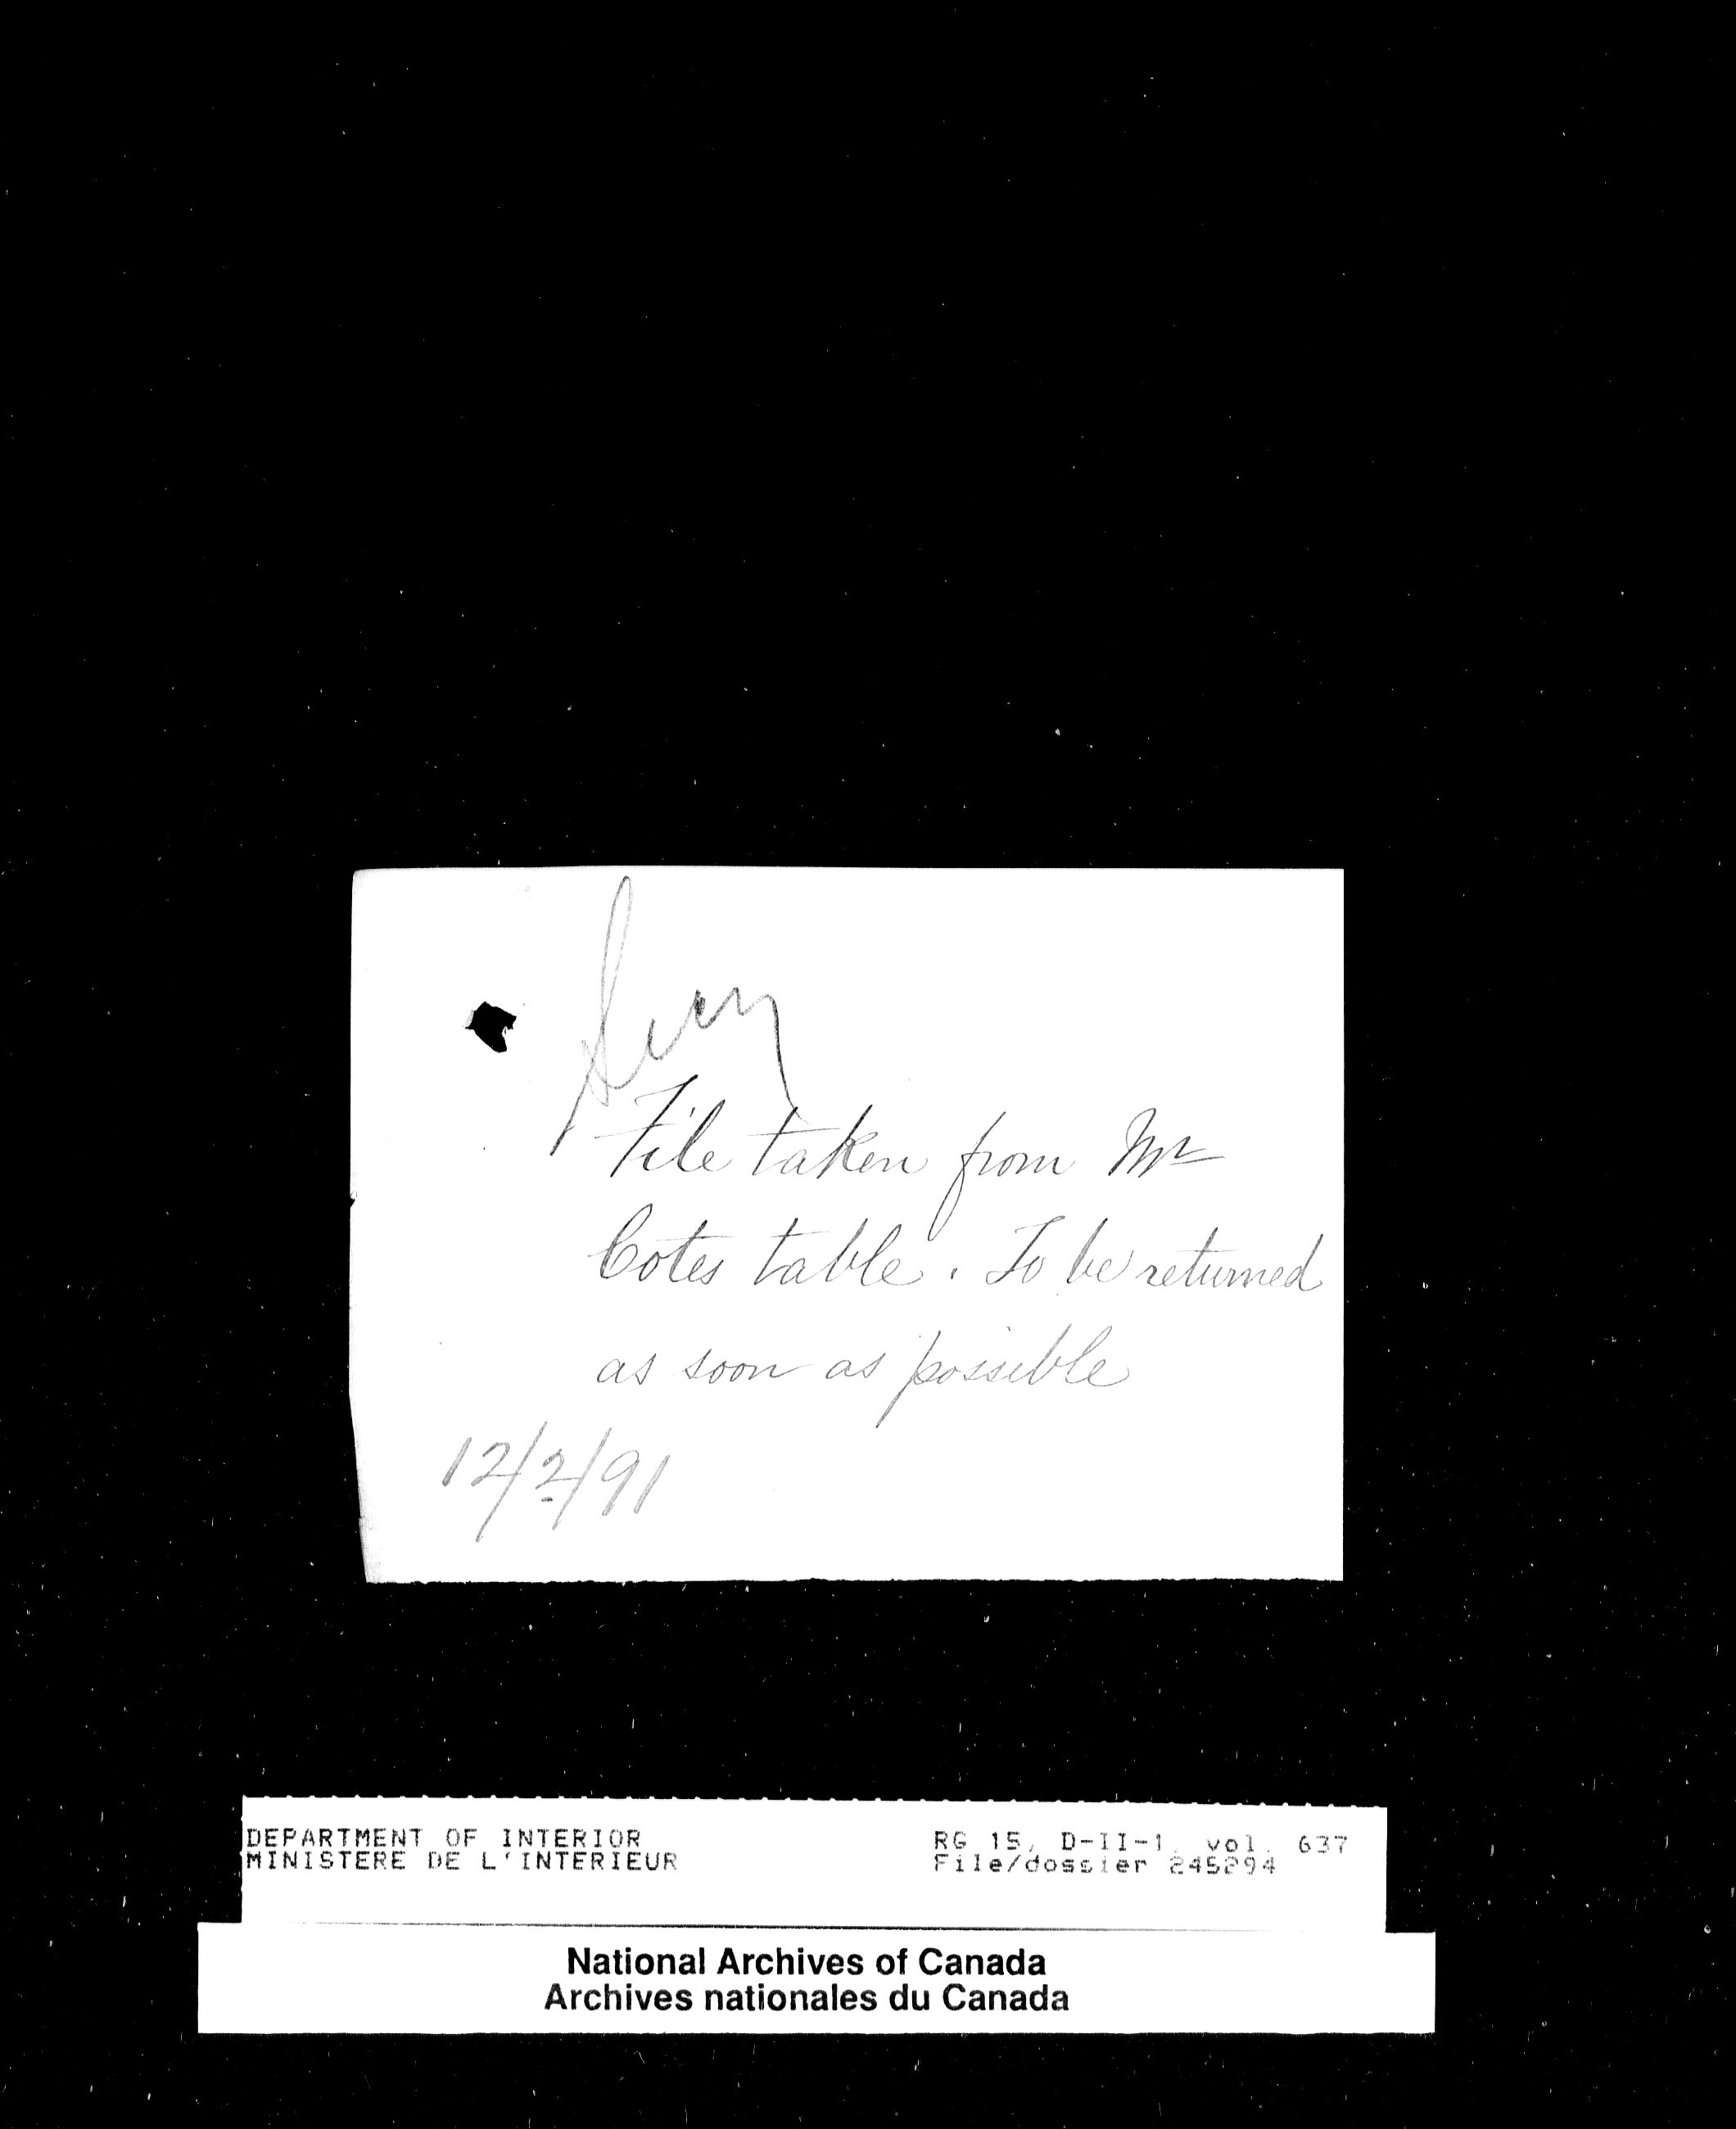 File taken from Mr
Cotes table. To be returned
as soon as possible
12/2/91
DEPARTMENT OF INTERIOR
MINISTERE DE L'INTERIEUR
RG 15, D-II-1, vol. 637
File/dossier 245294
National Archives of Canada
Archives nationales du Canada